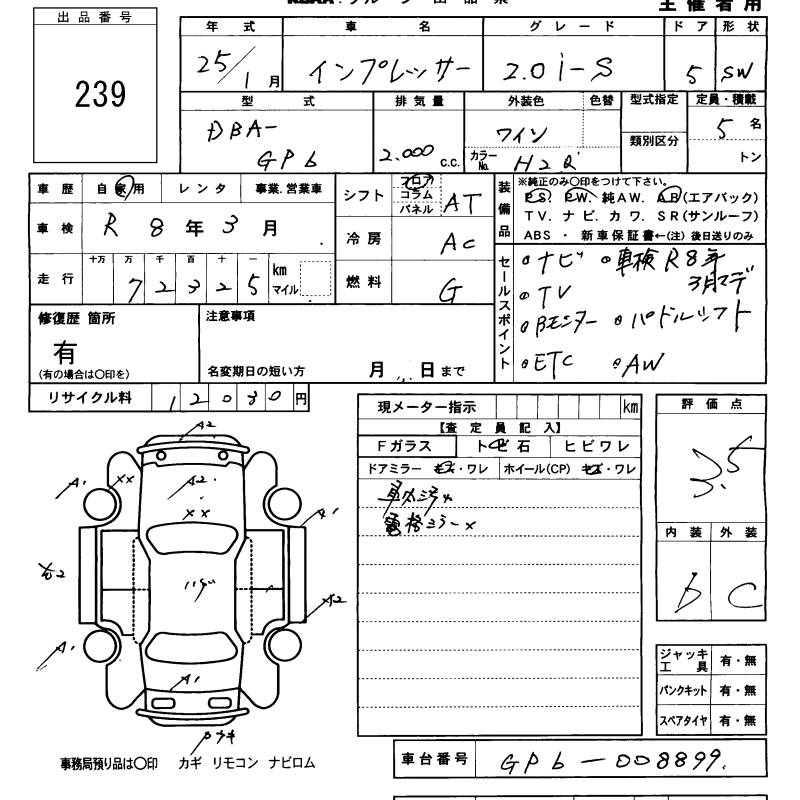 出品番号
239
主催者用
年式 車名 グレード ドア 形状
25/1月 インプレッサー 2.0i-S 5 SW
型式 排気量 外装色 色替 型式指定 定員・積載
DBA-
GP6
2.000 c.c.
ワイン
カラーNo. H2Q
類別区分
5名
トン
車歴 自家用 レンタ 事業.営業車
車検 R8年3月
走行 十万 万 千 百 十 一
72325 km マイル
シフト フロア コラム パネル AT
冷房 AC
燃料 G
装備品
※純正のみ〇印をつけて下さい。
PS. PW. 純AW. AB(エアバック)
TV. ナビ. カワ. SR(サンルーフ)
ABS ・ 新車保証書←(注) 後日送りのみ
セールスポイント
ナビ 車検R8年3月マデ
TV
Bモニター パドルシフト
ETC AW
修復歴 箇所
有
(有の場合は〇印を)
注意事項
名変期日の短い方 月 日まで
リサイクル料 12030円
現メーター指示 km
【査定員記入】
Fガラス トビ石 ヒビワレ
ドアミラー キズ・ワレ ホイール(CP) キズ・ワレ
車内汚れ
電格ミラー×
評価点
3.5
内装 外装
b C
ジャッキ工具 有・無
パンクキット 有・無
スペアタイヤ 有・無
A2
A1
××
A2
××
A1
A2
A1
A1
事務局預り品は〇印 カギ リモコン ナビロム
車台番号 GP6-008899.